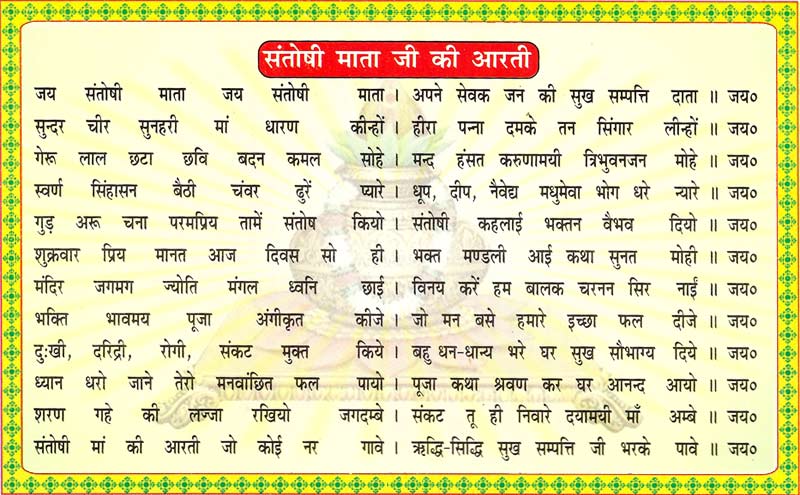 संतोषी माता जी की आरती
जय संतोषी माता जय संतोषी माता । अपने सेवक जन की सुख सम्पत्ति दाता ॥ जय०
सुन्दर चीर सुनहरी मां धारण कीन्हों । हीरा पन्ना दमके तन सिंगार लीन्हों ॥ जय०
गेरू लाल छटा छवि बदन कमल सोहे । मन्द हंसत करुणामयी त्रिभुवनजन मोहे ॥ जय०
स्वर्ण सिंहासन बैठी चंवर ढुरें प्यारे । धूप, दीप, नैवेद्य मधुमेवा भोग धरे न्यारे ॥ जय०
गुड़ अरू चना परमप्रिय तामें संतोष कियो । संतोषी कहलाई भक्तन वैभव दियो ॥ जय०
शुक्रवार प्रिय मानत आज दिवस सो ही । भक्त मण्डली आई कथा सुनत मोही ॥ जय०
मंदिर जगमग ज्योति मंगल ध्वनि छाई । विनय करें हम बालक चरनन सिर नाईं ॥ जय०
भक्ति भावमय पूजा अंगीकृत कीजे । जो मन बसे हमारे इच्छा फल दीजे ॥ जय०
दुःखी, दरिद्री, रोगी, संकट मुक्त किये । बहु धन-धान्य भरे घर सुख सौभाग्य दिये ॥ जय०
ध्यान धरो जाने तेरो मनवांछित फल पायो । पूजा कथा श्रवण कर घर आनन्द आयो ॥ जय०
शरण गहे की लज्जा रखियो जगदम्बे । संकट तू ही निवारे दयामयी माँ अम्बे ॥ जय०
संतोषी मां की आरती जो कोई नर गावे । ऋद्धि-सिद्धि सुख सम्पत्ति जी भरके पावे ॥ जय०